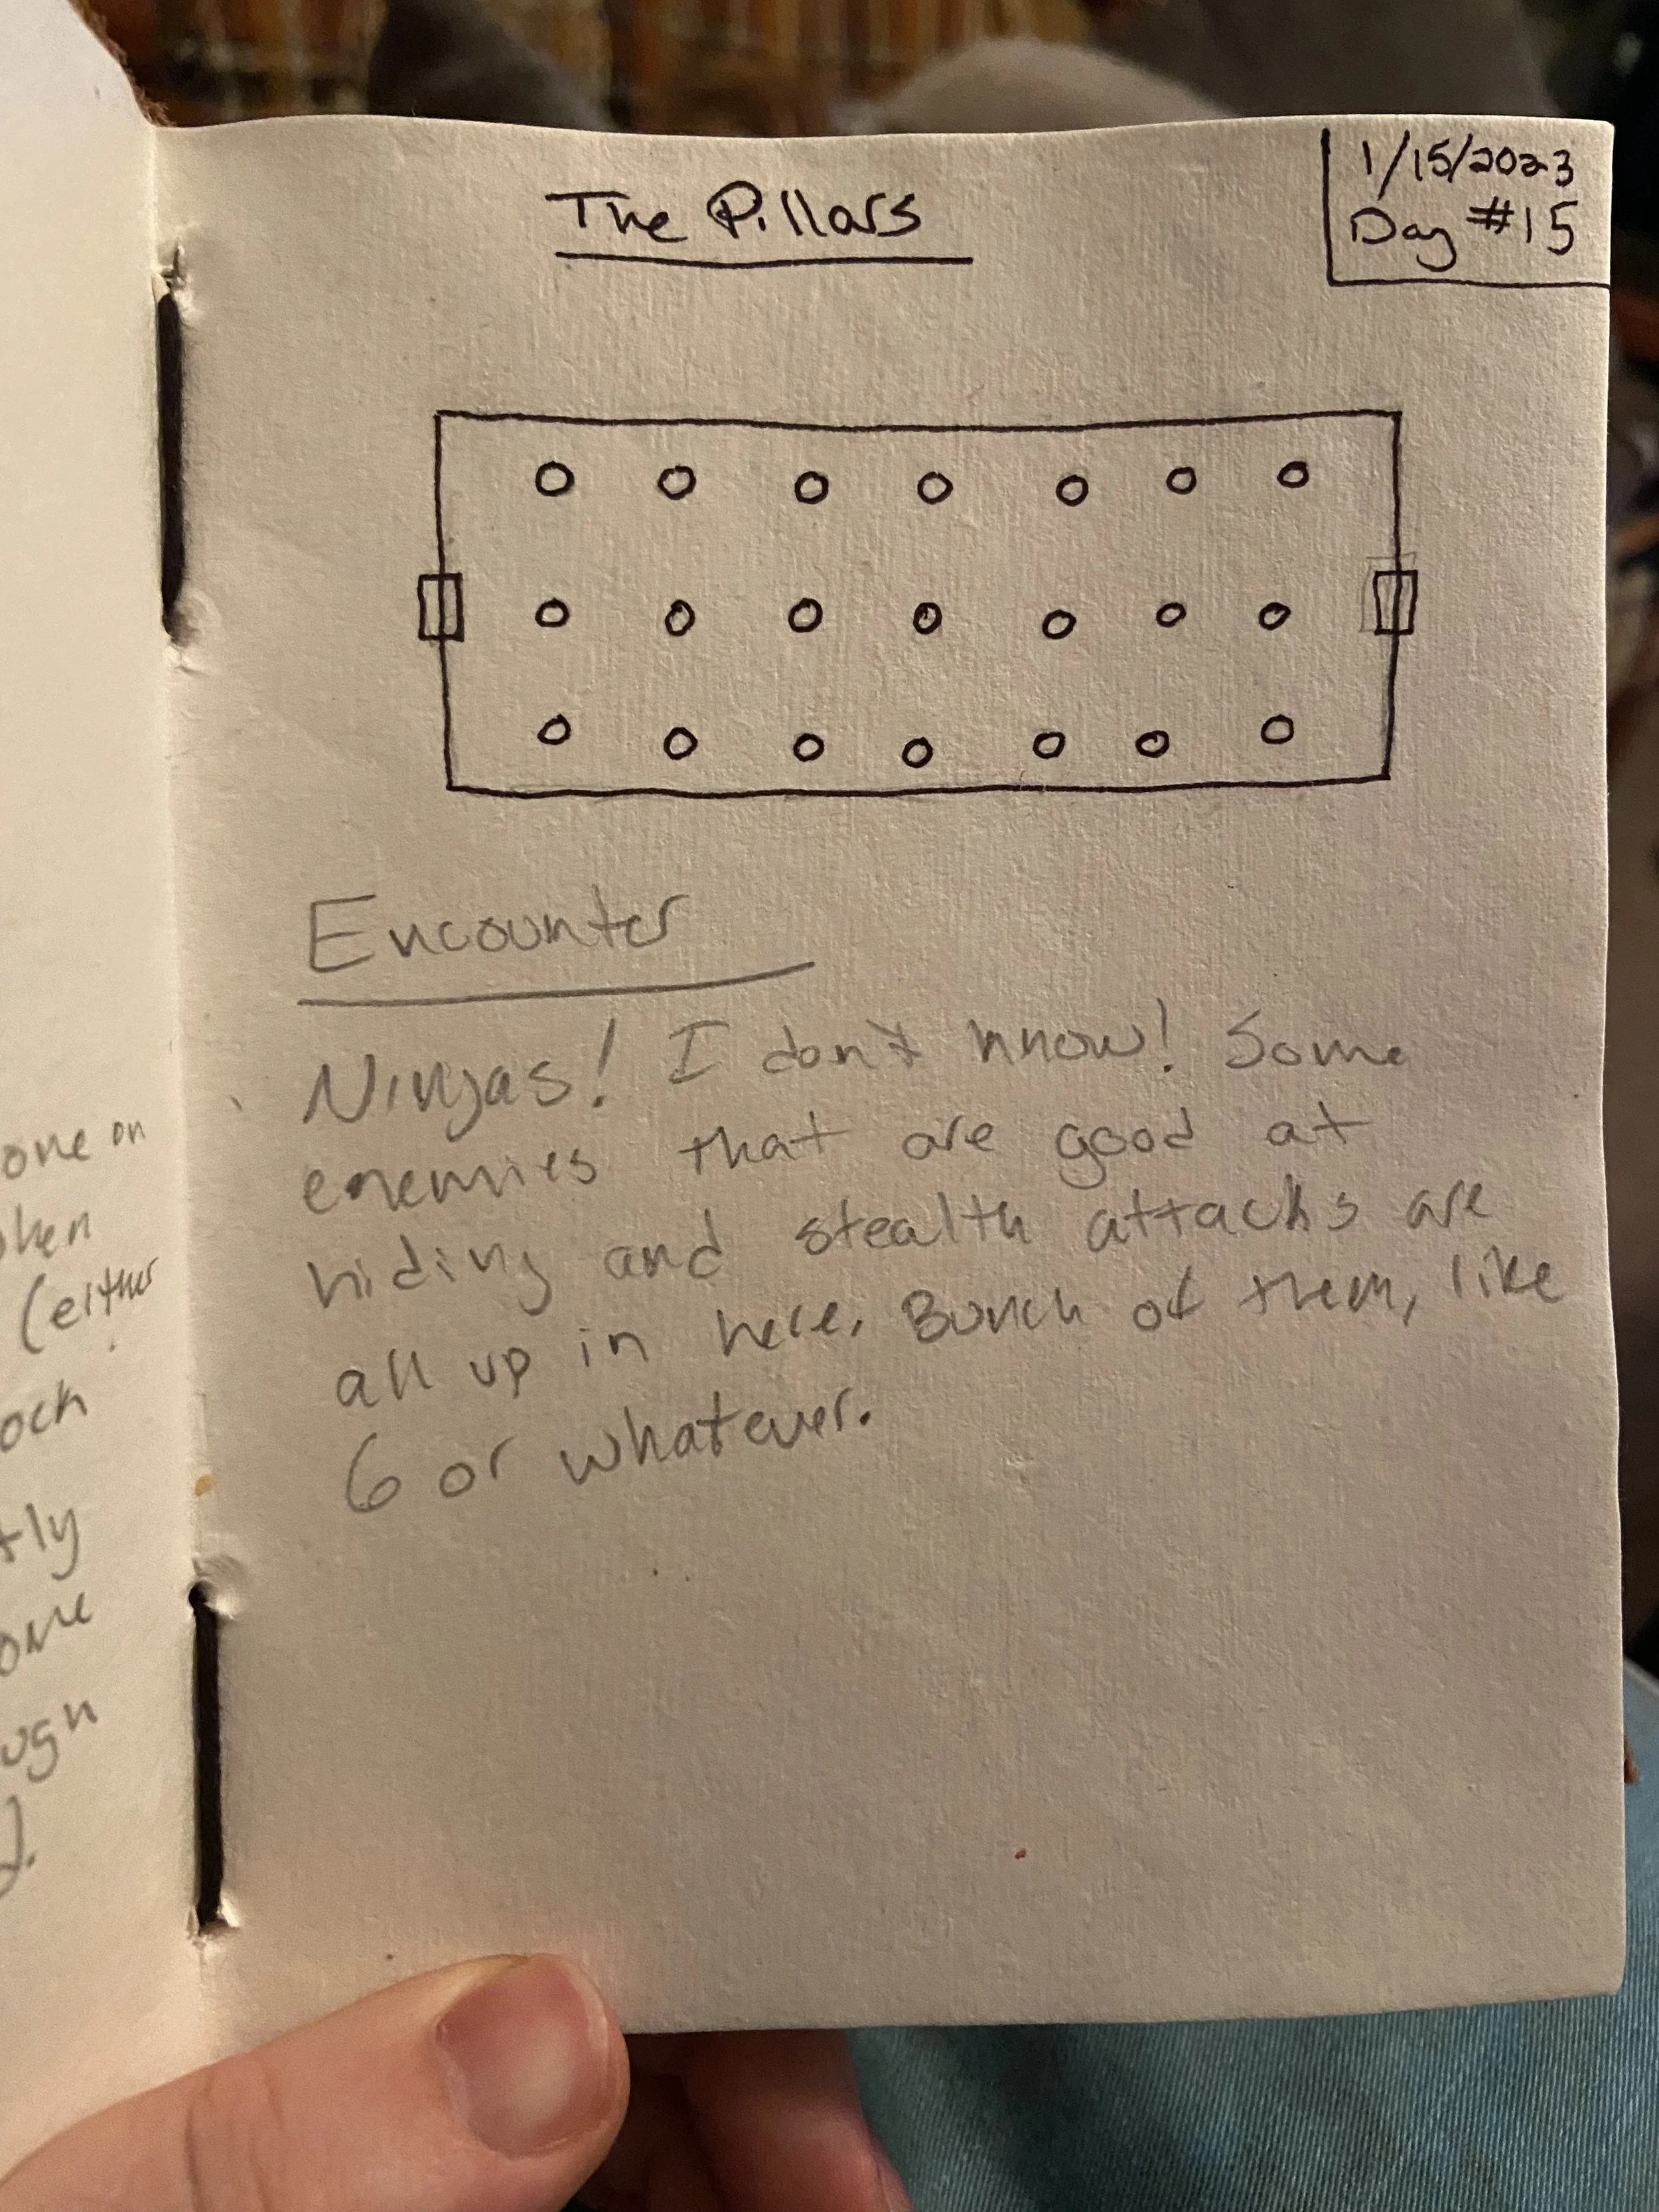 The Pillars
1/15/2023
Day #15
Encounter
Ninjas! I don't know! Some
enemies that are good at
hiding and stealth attacks are
all up in here. Bunch of them, like
6 or whatever.
one on
(either
ock
tly
ome
ugh
).